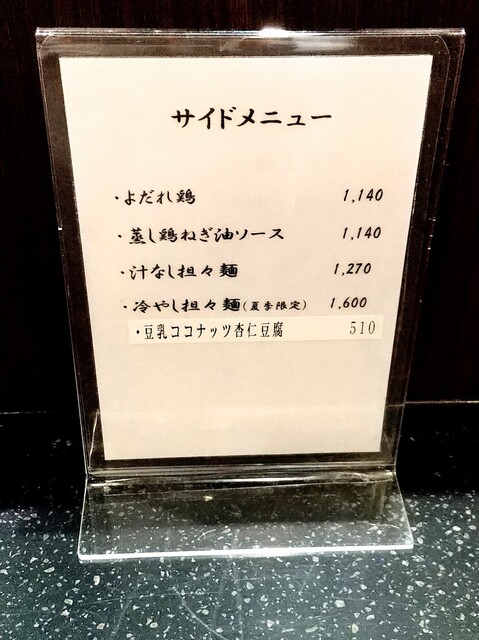 サイドメニュー
・よだれ鶏 1,140
・蒸し鶏ねぎ油ソース 1,140
・汁なし担々麺 1,270
・冷やし担々麺(夏季限定) 1,600
・豆乳ココナッツ杏仁豆腐 510